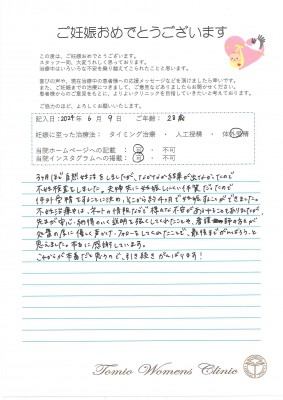 ご妊娠おめでとうございます
この度は、ご妊娠おめでとうございます。
スタッフ一同、大変うれしく思っております。
治療中はいろいろな不安を乗り越えてこられたことと思います。
喜びの声や、現在治療中の患者様への応援メッセージなどを頂けましたら幸いです。
また、ご妊娠までの治療につきまして、ご意見などありましたらお聞かせください。
患者様からのご意見をもとに、よりよいクリニックを目指していきたいと考えております。
ご協力のほど、よろしくお願いいたします。
記入日:2024年 6月 9日 ご年齢: 28歳
妊娠に至った治療法: タイミング治療 ・ 人工授精 ・ 体外受精
当院ホームページへの掲載: 可 ・ 不可
当院インスタグラムへの掲載: 可 ・ 不可
3ヶ月ほど自然妊活をしましたが、なかなか結果が出なかったので
不妊検査をしました。夫婦共に妊娠しにくい体質だったので
体外受精をすることに決め、そこから約4ヶ月で妊娠することができました。
不妊治療は、ネットの情報などで様々な不安がありましたが
先生が安心・納得のいく説明を強くしてくれたことや、看護師の方々が
処置の度に優しく声かけ・フォローをしてくれたことで、最後までがんばろう、と
思えました。本当に感謝しています。
これからが本番だと思うので、引き続きがんばります!
Tomio Womens Clinic